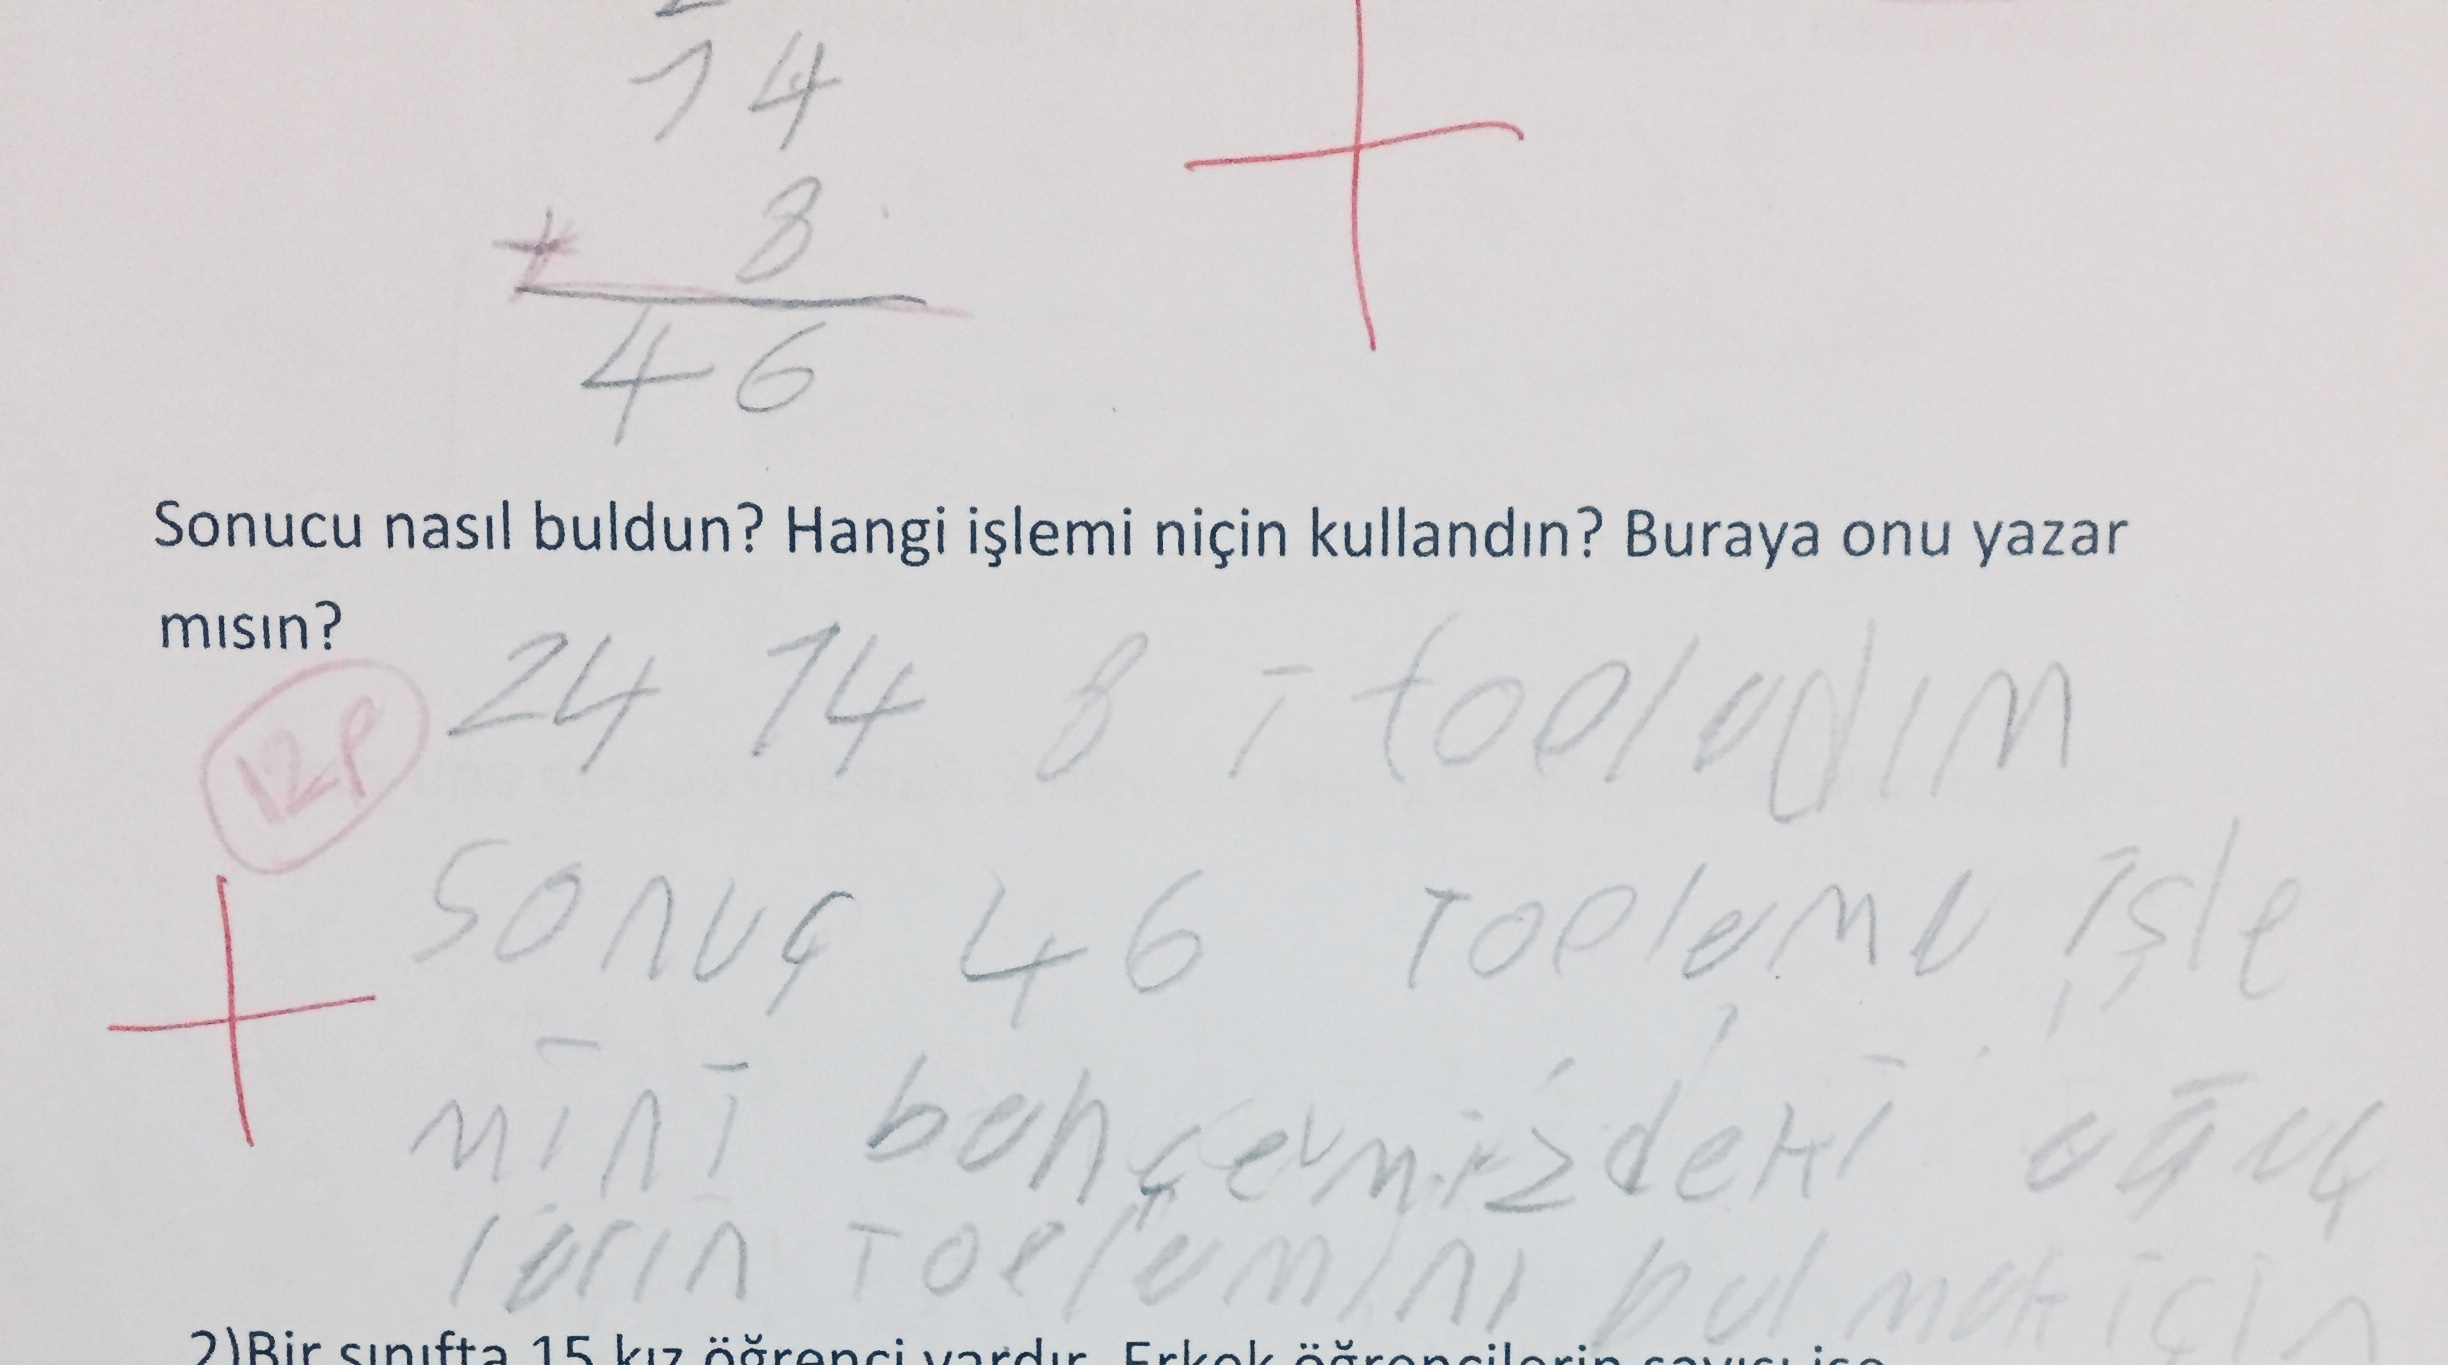 14
+ 8
46
Sonucu nasıl buldun? Hangi işlemi niçin kullandın? Buraya onu yazar
mısın?
24 14 8 i topladım
12P
sonuç 46 Toplama işle
mini bahçemizdeki ağaç
ların Toplamını bulmak için
2)Bir sınıfta 15 kız öğrenci vardır. Erkek öğrencilerin sayısı ise